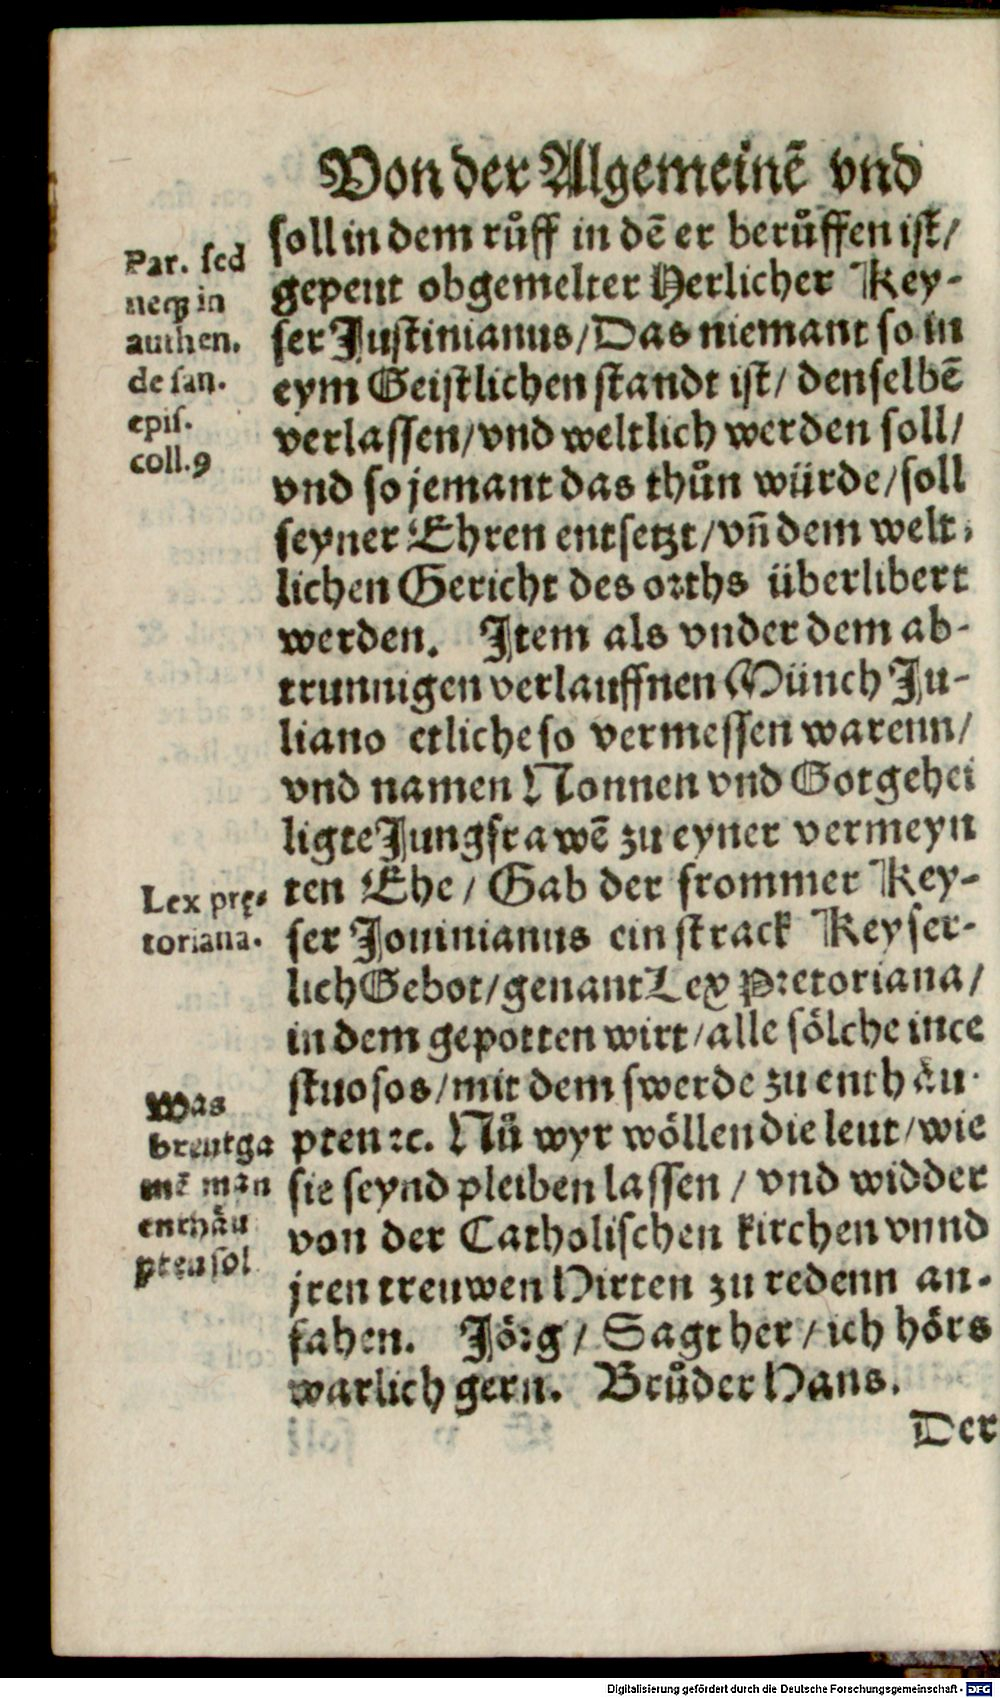 Von der Algemeinē vnd
soll in dem růff in dē er berůffen ist/
gepeut obgemelter Herlicher Key-
ser Justinianus/Das niemant so in
eym Geistlichen standt ist/ denselbē
verlassen/vnd weltlich werden soll/
vnd so jemant das thůn würde/soll
seyner Ehren entsetzt/vñ dem welt-
lichen Gericht des orths überlibert
werden. Item als vnder dem ab-
trunnigen verlauffnen Münch Ju-
liano etliche so vermessen warenn/
vnd namen Nonnen vnd Gotgehei
ligte Jungfrawē zu eyner vermeyn
ten Ehe / Gab der frommer Key-
ser Jouinianus ein strack Keyser-
lich Gebot/genant Lex Pretoriana/
in dem gepotten wirt/alle sölche ince
stuosos/mit dem swerde zu enthäu-
pten ꝛc. Nů wyr wöllen die leut/wie
sie seynd pleiben lassen / vnd widder
von der Catholischen kirchen vnnd
jren treuwen Hirten zu redenn an-
fahen. Jörg / Sagt her / ich hörs
warlich gern. Brůder Hans.
Der
Par. sed
neqꝫ in
authen.
de san.
epis.
coll.9
Lex prę-
toriana.
Was
breutga
mē man
enthäu
pten sol
Digitalisierung gefördert durch die Deutsche Forschungsgemeinschaft - DFG